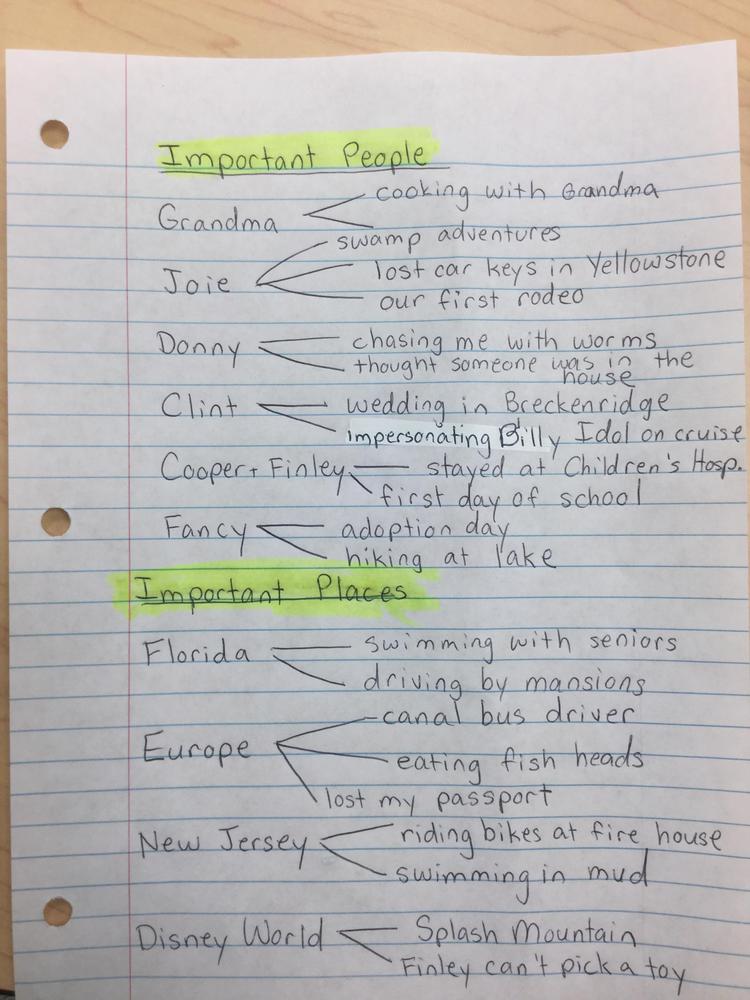 Important People
cooking with Grandma
Grandma
swamp adventures
Joie
lost car keys in Yellowstone
our first rodeo
Donny
chasing me with worms
thought someone was in the
house
Clint
wedding in Breckenridge
impersonating Billy Idol on cruise
Cooper + Finley
stayed at Children's Hosp.
first day of school
Fancy
adoption day
hiking at lake
Important Places
Florida
swimming with seniors
driving by mansions
canal bus driver
Europe
eating fish heads
lost my passport
New Jersey
riding bikes at fire house
swimming in mud
Disney World
Splash Mountain
Finley can't pick a toy